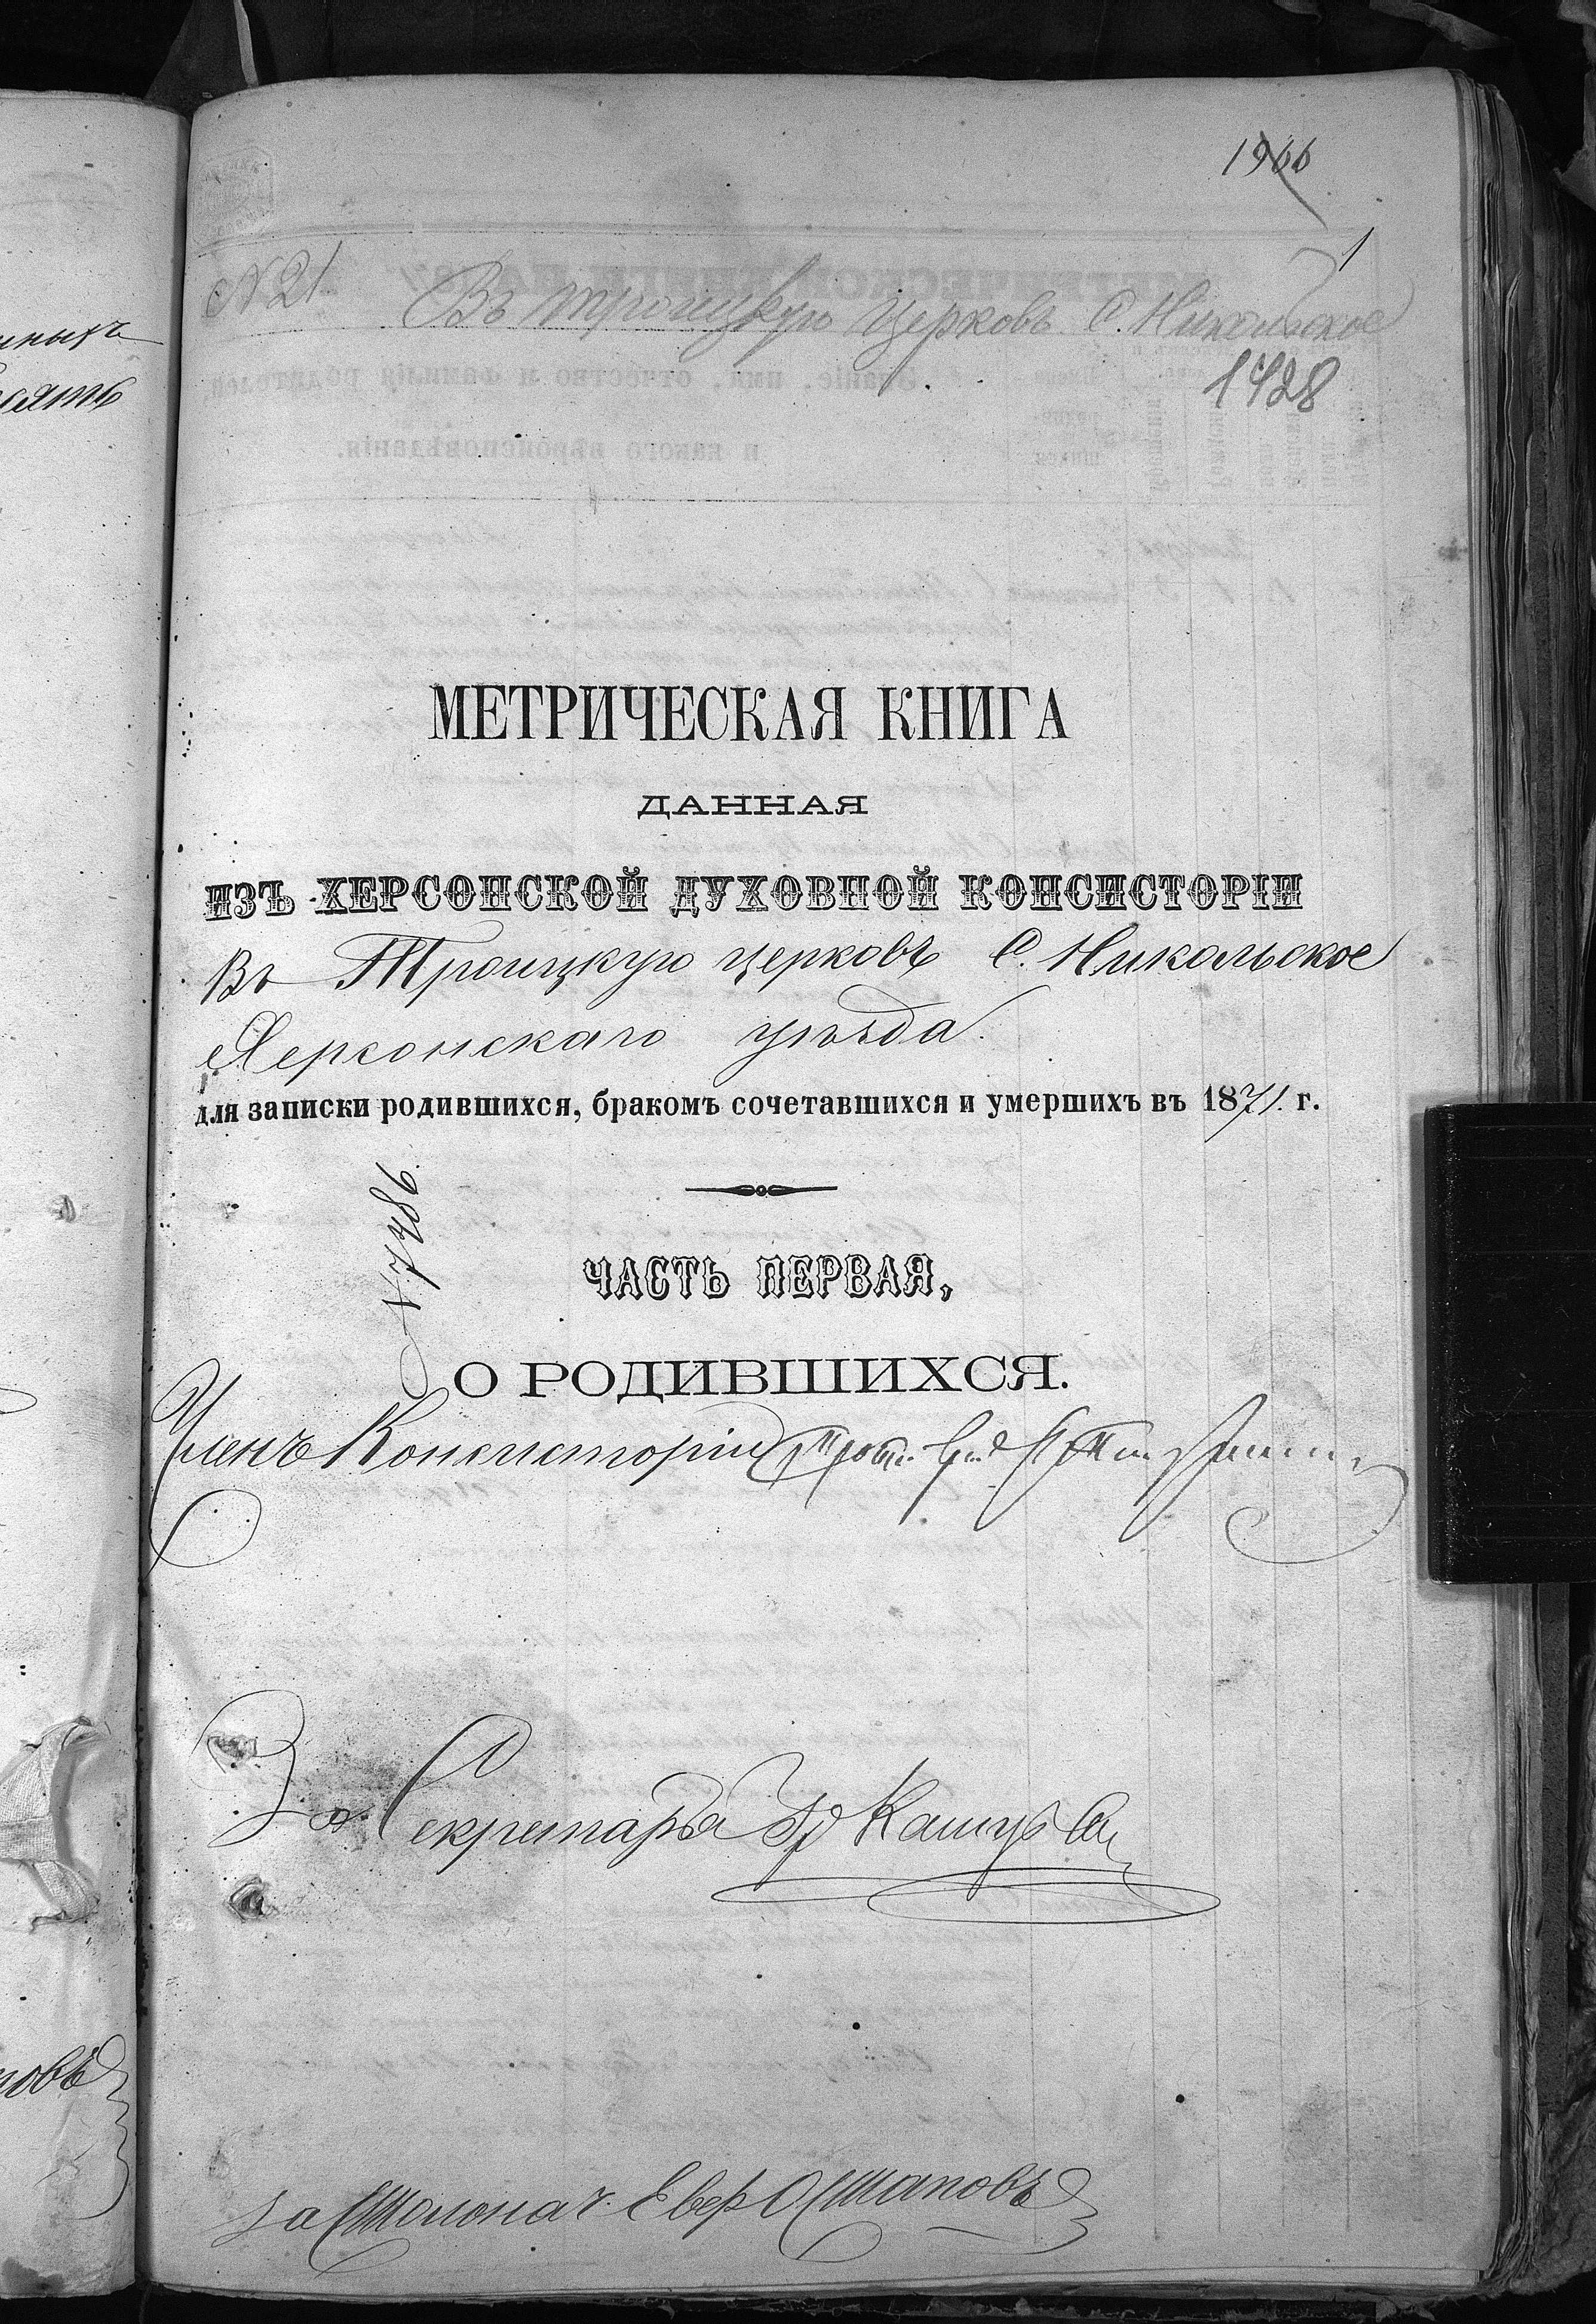 1966
1
№ 21. Въ Троицкую Церковь С. Никольское
1428
МЕТРИЧЕСКАЯ КНИГА
ДАННАЯ
ИЗЪ ХЕРСОНСКОЙ ДУХОВНОЙ КОНСИСТОРІИ
Въ Троицкую церковь С. Никольское
Херсонскаго уѣзда.
для записки родившихся, бракомъ сочетавшихся и умершихъ въ 1871. г.
ЧАСТЬ ПЕРВАЯ,
О РОДИВШИХСЯ.
Членъ Консисторіи
За Секретаря
за Столонач. Евер Осташовъ